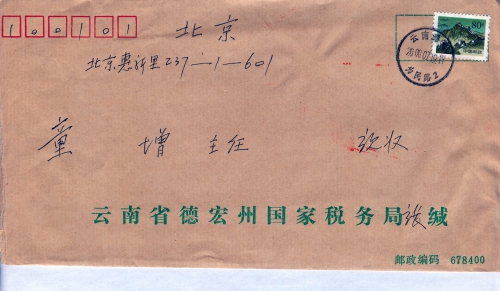 100101
北京
北京惠新里237-1-601
童增 主任 收
云南省德宏州国家税务局 缄
邮政编码 678400
80分
云南
2000.02
为民路2